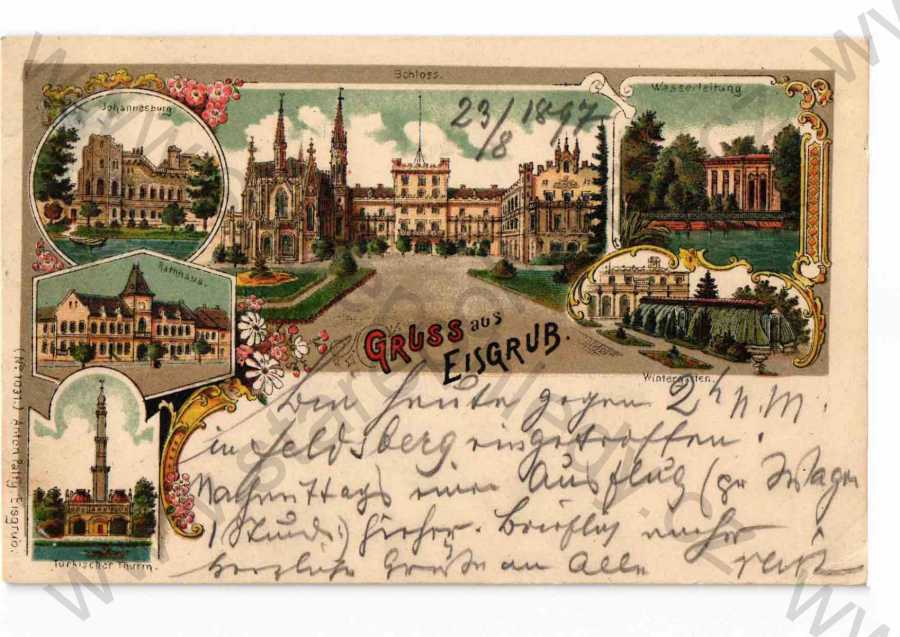 Schloss.
23/8 1897
Johannesburg
Wasserleitung
Rathhaus.
Gruss aus
Eisgrub.
Wintergarten.
Türkischer Thurm.
Anton Palfy, Eisgrub.
Bin heute gegen 2h n.M.
in Feldsberg eingetroffen.
Nachmittags einen Ausflug (per Wagen
1 Stunde) hieher. Brieflich mehr
herzliche Grüße an Alle